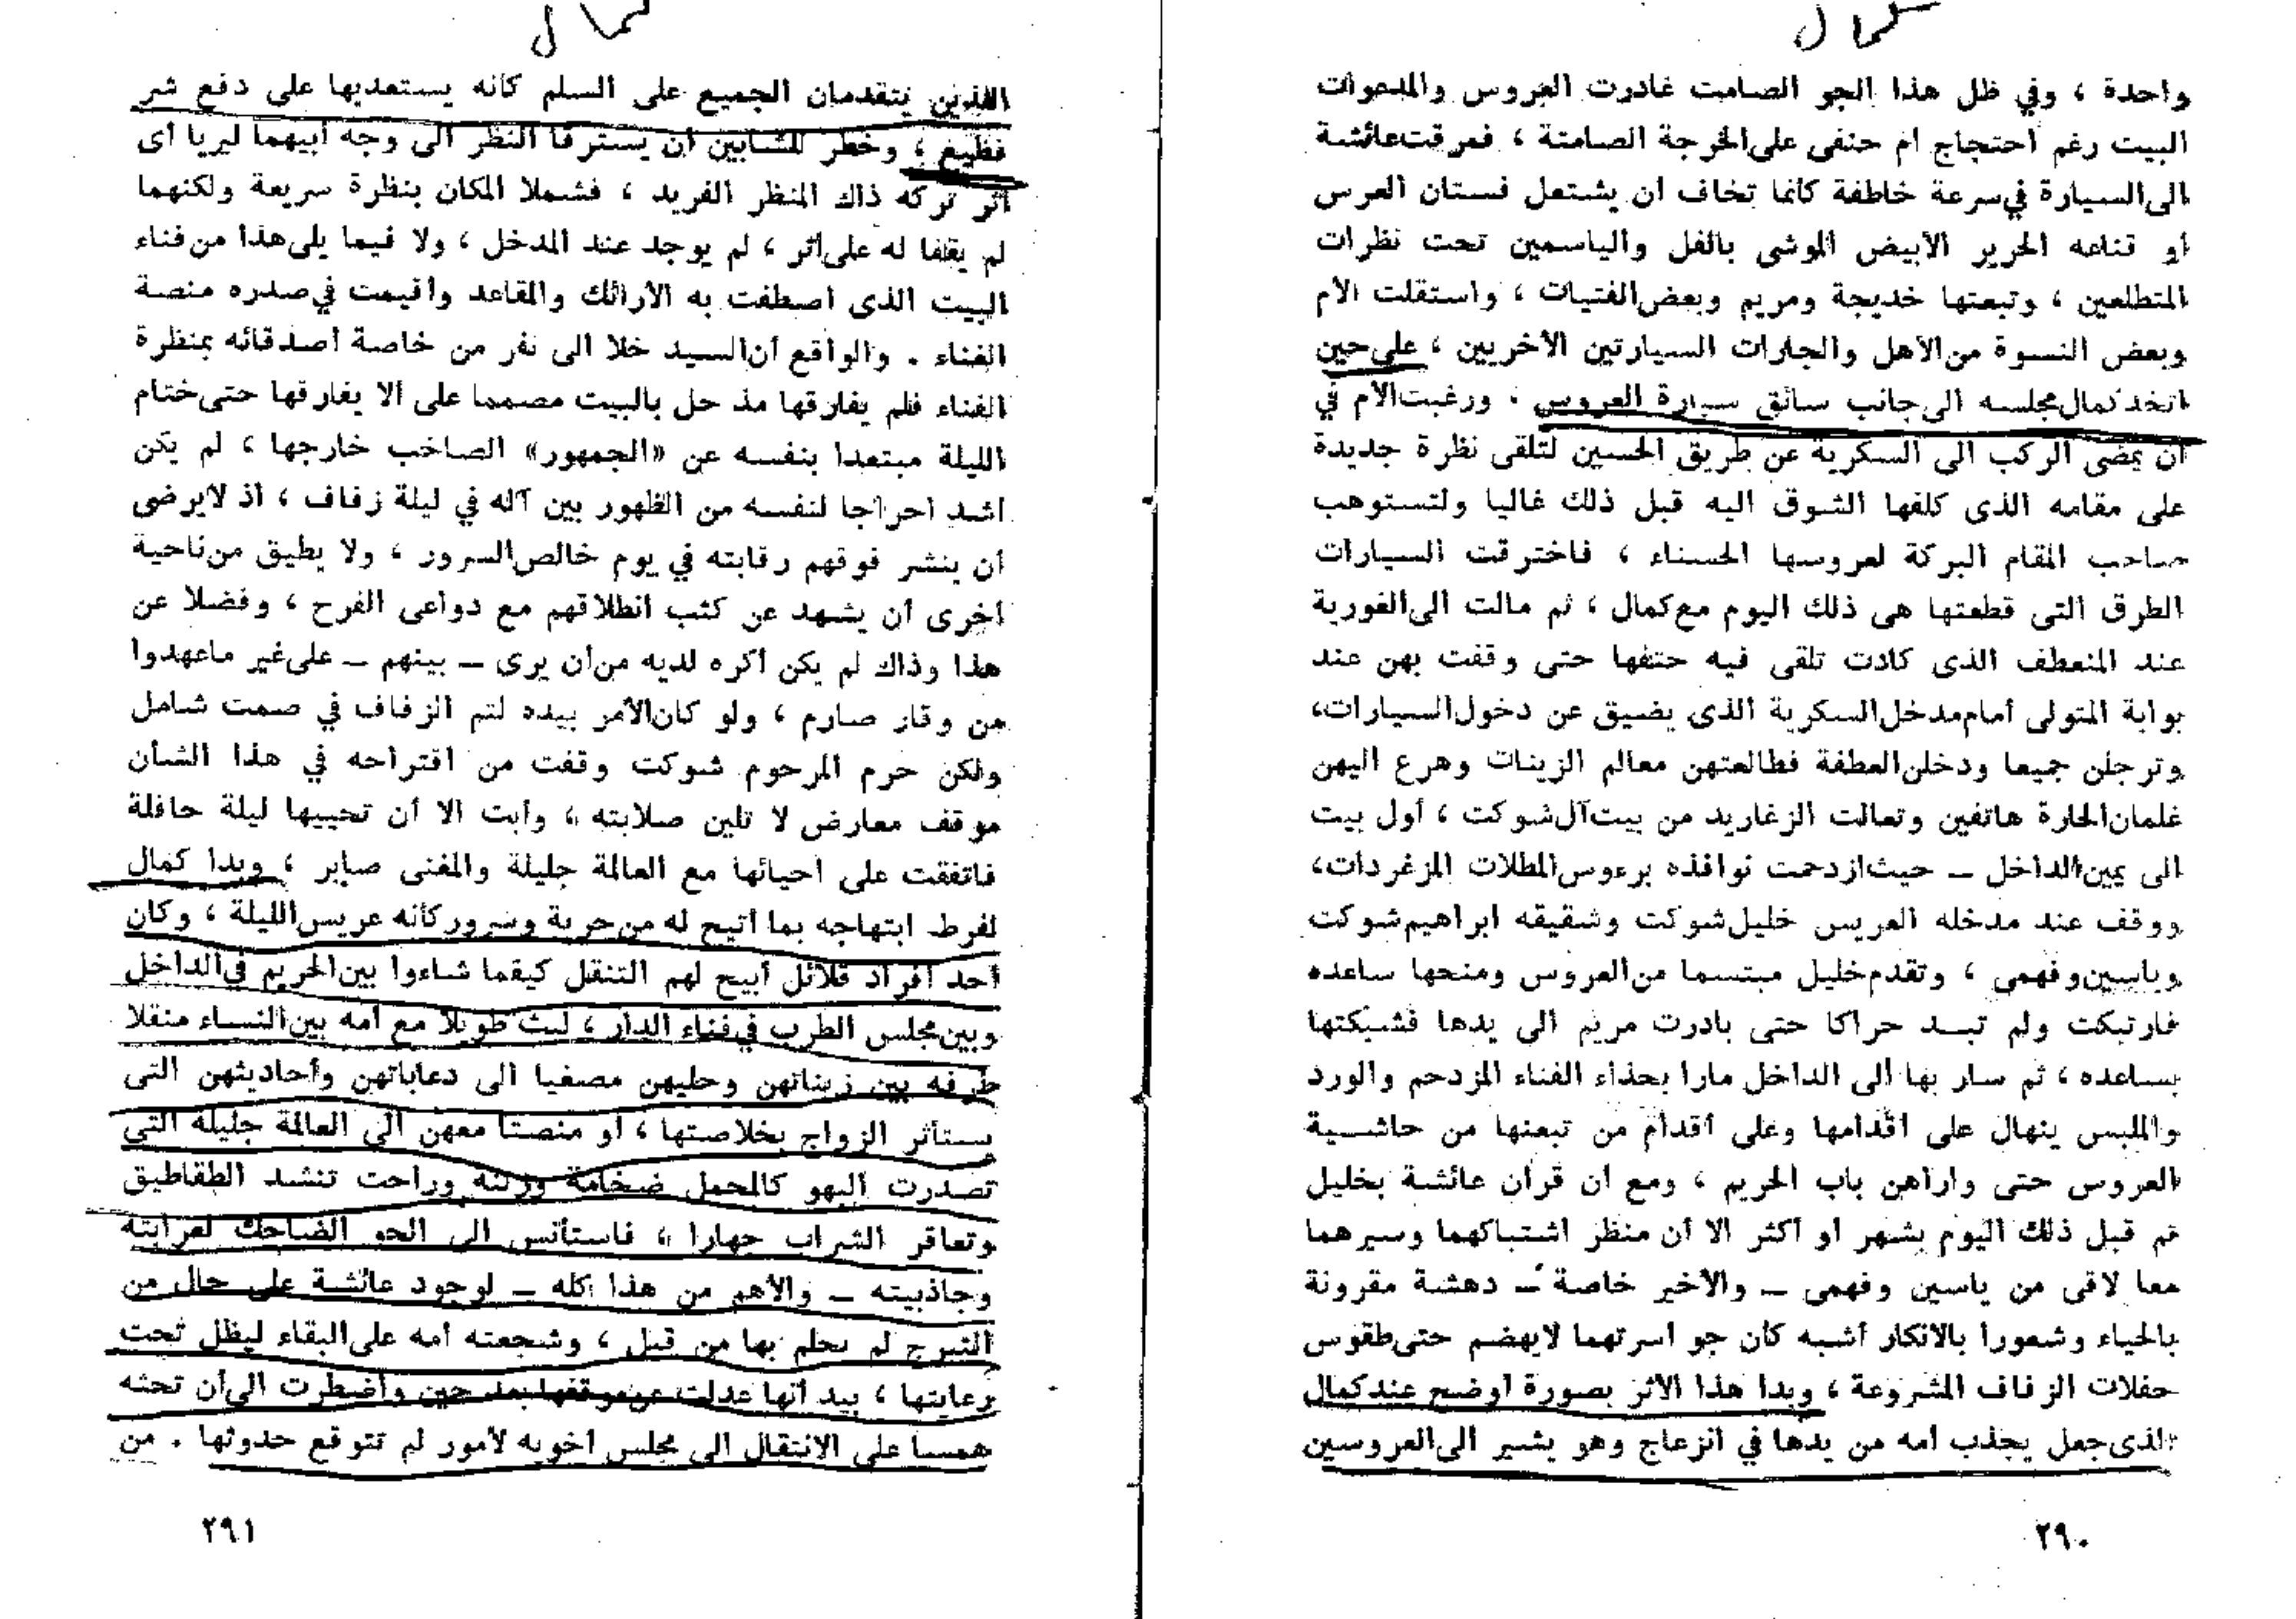 كمال
واحدة ، وفي ظل هذا الجو الصامت غادرت العروس والمدعوات
البيت رغم احتجاج ام حنفى على الخرجة الصامتة ، فمرقت عائشة
الى السيارة في سرعة خاطفة كانما تخاف ان يشتعل فستان العرس
أو قناعه الحرير الابيض الموشى بالفل والياسمين تحت نظرات
المتطلعين ، وتبعتها خديجة ومريم وبعض الفتيات ، واستقلت الام
وبعض النسوة من الاهل والجارات السيارتين الأخريين ، على حين
اتخذ كمال مجلسه الى جانب سائق سيارة العروس . ورغبت الام في
أن يمضى الركب الى السكرية عن طريق الحسين لتلقى نظرة جديدة
على مقامه الذى كلفها الشوق اليه قبل ذلك غاليا ولتستوهب
صاحب المقام البركة لعروسها الحسناء ، فاخترقت السيارات
الطرق التى قطعتها هى ذلك اليوم مع كمال ، ثم مالت الى الغورية
عند المنعطف الذى كادت تلقى فيه حتفها حتى وقفت بهن عند
بوابة المتولى أمام مدخل السكرية الذى يضيق عن دخول السيارات،
وترجلن جميعا ودخلن العطفة فطالعتهن معالم الزينات وهرع اليهن
غلمان الحارة هاتفين وتعالت الزغاريد من بيت آل شوكت ، أول بيت
الى يمين الداخل ـ حيث ازدحمت نوافذه برءوس المطلات المزغردات،
ووقف عند مدخله العريس خليل شوكت وشقيقه ابراهيم شوكت
وياسين وفهمى ، وتقدم خليل مبتسما من العروس ومنحها ساعده
فارتبكت ولم تبد حراكا حتى بادرت مريم الى يدها فشبكتها
بساعده ، ثم سار بها الى الداخل مارا بحذاء الفناء المزدحم والورد
والملبس ينهال على اقدامها وعلى أقدام من تبعنها من حاشية
العروس حتى واراهن باب الحريم ، ومع ان قران عائشة بخليل
تم قبل ذلك اليوم بشهر او أكثر الا أن منظر اشتباكهما وسيرهما
معا لاقى من ياسين وفهمى ـ والأخير خاصة ـ دهشة مقرونة
بالحياء وشعورا بالانكار أشبه كأن جو اسرتهما لا يهضم حتى طقوس
حفلات الزفاف المشروعة ، وبدا هذا الاثر بصورة أوضح عند كمال
الذى جعل يجذب أمه من يدها في انزعاج وهو يشير الى العروسين
٢٩٠
كمال
اللذين يتقدمان الجميع على السلم كأنه يستعديها على دفع شر
فظيع ، وخطر للشابين أن يسترقا النظر الى وجه أبيهما ليريا أى
أثر تركه ذاك المنظر الفريد ، فشملا المكان بنظرة سريعة ولكنهما
لم يقفا له على اثر ، لم يوجد عند المدخل ، ولا فيما يلى هذا من فناء
البيت الذى اصطفت به الأرائك والمقاعد واقيمت في صدره منصة
الغناء . والواقع أن السيد خلا الى نفر من خاصة أصدقائه بمنظرة
الفناء فلم يفارقها مذ حل بالبيت مصمما على الا يفارقها حتى ختام
الليلة مبتعدا بنفسه عن «الجمهور» الصاخب خارجها ، لم يكن
أشد احراجا لنفسه من الظهور بين آله في ليلة زفاف ، اذ لا يرضى
أن ينشر فوقهم رقابته في يوم خالص السرور ، ولا يطيق من ناحية
اخرى أن يشهد عن كثب انطلاقهم مع دواعى الفرح ، وفضلا عن
هذا وذاك لم يكن أكره لديه من أن يرى ـ بينهم ـ على غير ما عهدوا
من وقار صارم ، ولو كان الأمر بيده لتم الزفاف في صمت شامل
ولكن حرم المرحوم شوكت وقفت من اقتراحه في هذا الشأن
موقف معارض لا تلين صلابته ، وأبت الا أن تحييها ليلة حافلة
فاتفقت على احيائها مع العالمة جليلة والمغنى صابر ، وبدا كمال
لفرط ابتهاجه بما أتيح له من حرية وسرور كأنه عريس الليلة ، وكان
أحد أفراد قلائل أبيح لهم التنقل كيفما شاءوا بين الحريم في الداخل
وبين مجلس الطرب في فناء الدار ، لبث طويلا مع أمه بين النساء منقلا
طرفه بين زيناتهن وحليهن مصغيا الى دعاباتهن وأحاديثهن التى
يستأثر الزواج بخلاصتها ، أو منصتا معهن الى العالمة جليلة التى
تصدرت البهو كالمحمل ضخامة وزينة وراحت تنشد الطقاطيق
وتعاقر الشراب جهارا ، فاستأنس الى الجو الضاحك لغرابته
وجاذبيته ـ والأهم من هذا كله ـ لوجود عائشة على حال من
التبرج لم يحلم بها من قبل ، وشجعته أمه على البقاء ليظل تحت
رعايتها ، بيد أنها عدلت عن موقفها بعد حين واضطرت الى أن تحثه
همسا على الانتقال الى مجلس أخويه لأمور لم تتوقع حدوثها . من
٢٩١